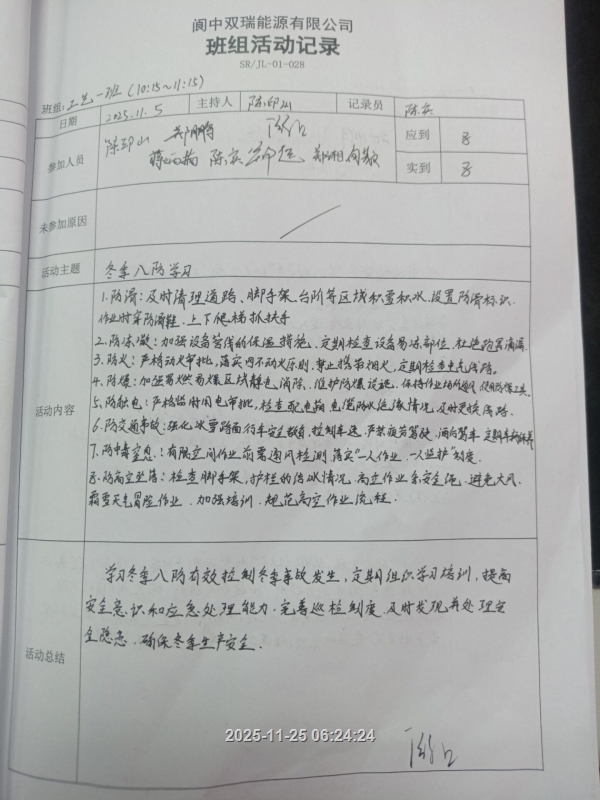 阆中双瑞能源有限公司
班组活动记录
SR/JL-01-028
班组:工艺一班(10:15~11:15)
日期 2025.11.5 主持人 陈印山 记录员 陈宾
参加人员 陈印山 郑鹏
陈宾 郑湘
应到 8
实到 8
未参加原因
活动主题 冬季八防学习
活动内容
1.防滑:及时清理道路、脚手架、台阶等区域积雪积水、设置防滑标识.
作业时穿防滑鞋、上下爬梯抓扶手
2.防冻凝:加强设备管线的保温措施、定期检查设备易冻部位、杜绝跑冒滴漏
3.防火:严格动火审批,落实四不动火原则、禁止携带烟火,定期检查电气线路.
4.防爆:加强易燃易爆区域静电消除、维护防爆设施、保持作业场所通风 使用防爆工具.
5.防触电:严格临时用电审批,检查配电箱电缆防水绝缘情况,及时更换线路.
6.防交通事故:强化冰雪路面行车安全教育,控制车速、严禁疲劳驾驶、酒后驾车
7.防中毒窒息:有限空间作业前需通风检测 落实"一人作业、一人监护"制度.
8.防高空坠落:检查脚手架,护栏的结冰情况、高空作业系安全绳、避免大风、
霜雪天气冒险作业、加强培训、规范高空作业流程.
活动总结
学习冬季八防有效控制冬季事故发生,定期组织学习培训,提高
安全意识和应急处理能力.完善巡检制度、及时发现并处理安
全隐患.确保冬季生产安全.
2025-11-25 06:24:24